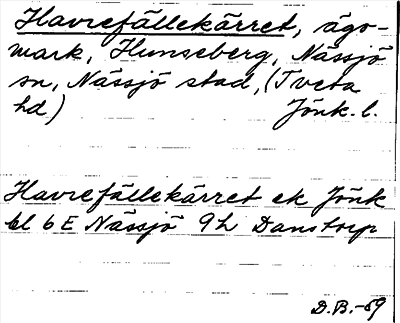 Havrefällekärret, ägo-
mark, Hunseberg, Nässjö
sn, Nässjö stad, (Tveta
hd) Jönk. l.
Havrefällekärret ek Jönk
bl 6 E Nässjö 9h Danstorp
D.B.-69